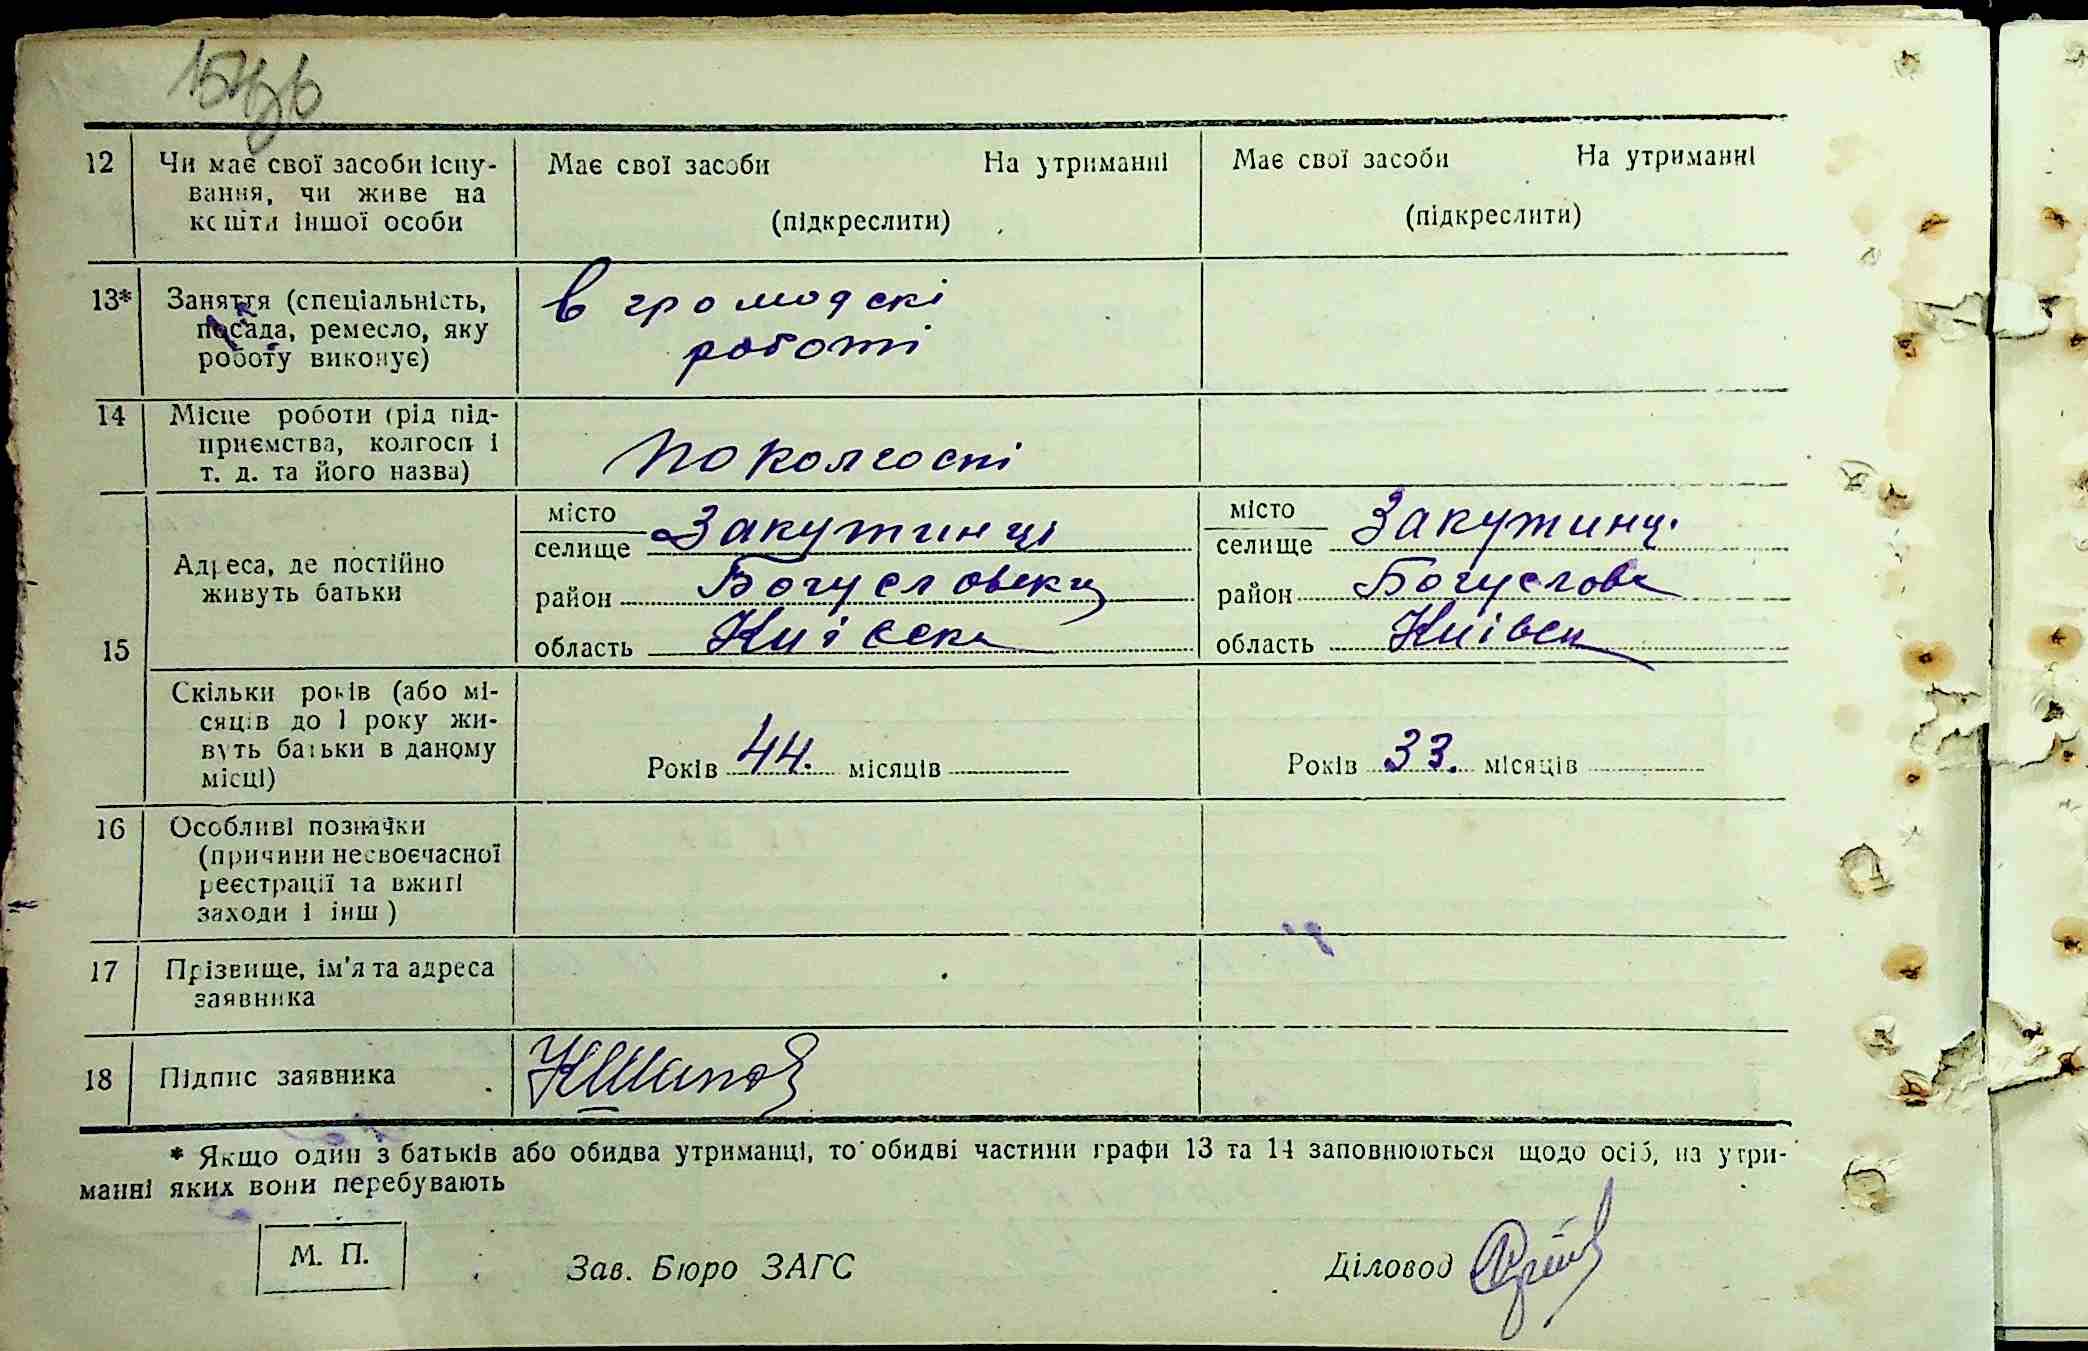 12 Чи має свої засоби існу-
вання, чи живе на
кошти іншої особи
Має свої засоби На утриманні
(підкреслити)
Має свої засоби На утриманні
(підкреслити)
13* Заняття (спеціальність,
посада, ремесло, яку
роботу виконує)
в громодскі
роботі
14 Місце роботи (рід під-
приємства, колгосп і
т. д. та його назва)
по колгоспі
15 Адреса, де постійно
живуть батьки
місто
селище Закутинці
район Богуславски
область Київска
місто
селище Закутинці
район Богуслове
область Київск
Скільки років (або мі-
сяців до 1 року жи-
вуть батьки в даному
місці)
Років 44. місяців
Років 33. місяців
16 Особливі позначки
(причини несвоєчасної
реєстрації та вжиті
заходи і інш)
17 Прізвище, ім'я та адреса
заявника
18 Підпис заявника
* Якщо один з батьків або обидва утриманці, то обидві частини графи 13 та 14 заповнюються щодо осіб, на утри-
манні яких вони перебувають
М. П.
Зав. Бюро ЗАГС
Діловод